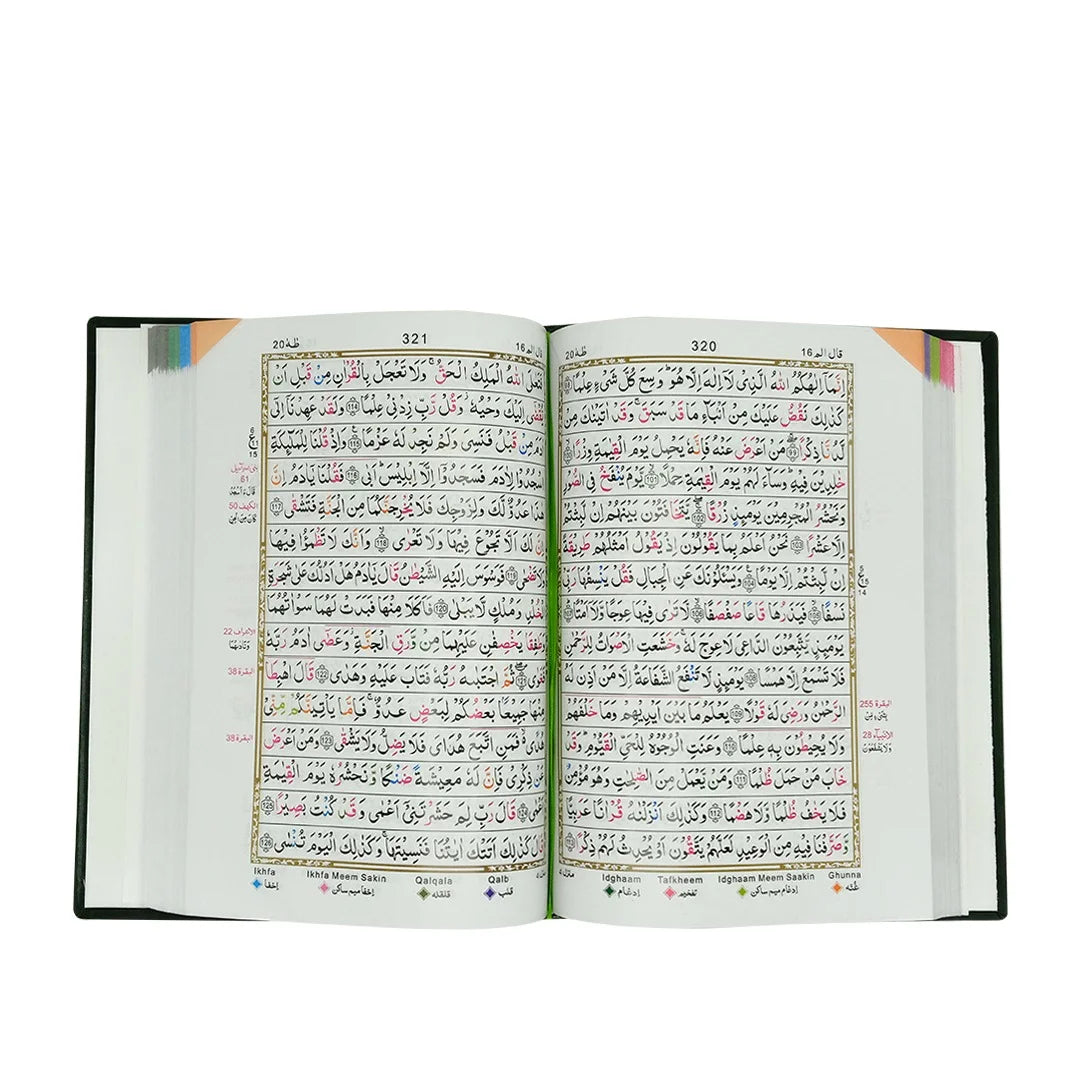 قال الم 16 320 طٰهٰ 20
اِنَّمَاۤ اِلٰهُكُمُ اللّٰهُ الَّذِیْ لَاۤ اِلٰهَ اِلَّا هُوَ ؕ وَسِعَ كُلَّ شَیْءٍ عِلْمًا 98
كَذٰلِكَ نَقُصُّ عَلَیْكَ مِنْ اَنْۢبَآءِ مَا قَدْ سَبَقَ ۚ وَقَدْ اٰتَیْنٰكَ مِنْ
لَّدُنَّا ذِكْرًا 99 مَنْ اَعْرَضَ عَنْهُ فَاِنَّهٗ یَحْمِلُ یَوْمَ الْقِیٰمَةِ وِزْرًا 100
خٰلِدِیْنَ فِیْهِ ؕ وَسَآءَ لَهُمْ یَوْمَ الْقِیٰمَةِ حِمْلًا 101 یَّوْمَ یُنْفَخُ فِی الصُّوْرِ
وَنَحْشُرُ الْمُجْرِمِیْنَ یَوْمَىِٕذٍ زُرْقًا 102 یَّتَخَافَتُوْنَ بَیْنَهُمْ اِنْ لَّبِثْتُمْ
اِلَّا عَشْرًا 103 نَحْنُ اَعْلَمُ بِمَا یَقُوْلُوْنَ اِذْ یَقُوْلُ اَمْثَلُهُمْ طَرِیْقَةً
اِنْ لَّبِثْتُمْ اِلَّا یَوْمًا 104 وَیَسْـَٔلُوْنَكَ عَنِ الْجِبَالِ فَقُلْ یَنْسِفُهَا رَبِّیْ
نَسْفًا 105 فَیَذَرُهَا قَاعًا صَفْصَفًا 106 لَّا تَرٰی فِیْهَا عِوَجًا وَّلَاۤ اَمْتًا 107
یَوْمَىِٕذٍ یَّتَّبِعُوْنَ الدَّاعِیَ لَا عِوَجَ لَهٗ ۚ وَخَشَعَتِ الْاَصْوَاتُ لِلرَّحْمٰنِ
فَلَا تَسْمَعُ اِلَّا هَمْسًا 108 یَوْمَىِٕذٍ لَّا تَنْفَعُ الشَّفَاعَةُ اِلَّا مَنْ اَذِنَ لَهُ
الرَّحْمٰنُ وَرَضِیَ لَهٗ قَوْلًا 109 یَعْلَمُ مَا بَیْنَ اَیْدِیْهِمْ وَمَا خَلْفَهُمْ
وَلَا یُحِیْطُوْنَ بِهٖ عِلْمًا 110 وَعَنَتِ الْوُجُوْهُ لِلْحَیِّ الْقَیُّوْمِ ؕ وَقَدْ
خَابَ مَنْ حَمَلَ ظُلْمًا 111 وَمَنْ یَّعْمَلْ مِنَ الصّٰلِحٰتِ وَهُوَ مُؤْمِنٌ
فَلَا یَخٰفُ ظُلْمًا وَّلَا هَضْمًا 112 وَكَذٰلِكَ اَنْزَلْنٰهُ قُرْاٰنًا عَرَبِیًّا
وَّصَرَّفْنَا فِیْهِ مِنَ الْوَعِیْدِ لَعَلَّهُمْ یَتَّقُوْنَ اَوْ یُحْدِثُ لَهُمْ ذِكْرًا 113
ع 5 14
البقرة 255
الانبیآء 28
Idghaam Tafkheem Idghaam Meem Saakin Ghunna
ادغام تفخیم ادغام میم ساکن غنّه
16 قال الم 321 طٰهٰ 20
فَتَعٰلَی اللّٰهُ الْمَلِكُ الْحَقُّ ۚ وَلَا تَعْجَلْ بِالْقُرْاٰنِ مِنْ قَبْلِ اَنْ
یُّقْضٰۤی اِلَیْكَ وَحْیُهٗ ؗ وَقُلْ رَّبِّ زِدْنِیْ عِلْمًا 114 وَلَقَدْ عَهِدْنَاۤ اِلٰۤی
اٰدَمَ مِنْ قَبْلُ فَنَسِیَ وَلَمْ نَجِدْ لَهٗ عَزْمًا 115 وَاِذْ قُلْنَا لِلْمَلٰٓىِٕكَةِ
اسْجُدُوْا لِاٰدَمَ فَسَجَدُوْۤا اِلَّاۤ اِبْلِیْسَ ؕ اَبٰی 116 فَقُلْنَا یٰۤاٰدَمُ اِنَّ
هٰذَا عَدُوٌّ لَّكَ وَلِزَوْجِكَ فَلَا یُخْرِجَنَّكُمَا مِنَ الْجَنَّةِ فَتَشْقٰی 117
اِنَّ لَكَ اَلَّا تَجُوْعَ فِیْهَا وَلَا تَعْرٰی 118 وَاَنَّكَ لَا تَظْمَؤُا فِیْهَا
وَلَا تَضْحٰی 119 فَوَسْوَسَ اِلَیْهِ الشَّیْطٰنُ قَالَ یٰۤاٰدَمُ هَلْ اَدُلُّكَ عَلٰی شَجَرَةِ
الْخُلْدِ وَمُلْكٍ لَّا یَبْلٰی 120 فَاَكَلَا مِنْهَا فَبَدَتْ لَهُمَا سَوْاٰتُهُمَا
وَطَفِقَا یَخْصِفٰنِ عَلَیْهِمَا مِنْ وَّرَقِ الْجَنَّةِ ؗ وَعَصٰۤی اٰدَمُ رَبَّهٗ
فَغَوٰی 121 ثُمَّ اجْتَبٰىهُ رَبُّهٗ فَتَابَ عَلَیْهِ وَهَدٰی 122 قَالَ اهْبِطَا
مِنْهَا جَمِیْعًۢا بَعْضُكُمْ لِبَعْضٍ عَدُوٌّ ۚ فَاِمَّا یَاْتِیَنَّكُمْ مِّنِّیْ
هُدًی ۙ فَمَنِ اتَّبَعَ هُدَایَ فَلَا یَضِلُّ وَلَا یَشْقٰی 123 وَمَنْ اَعْرَضَ
عَنْ ذِكْرِیْ فَاِنَّ لَهٗ مَعِیْشَةً ضَنْكًا وَّنَحْشُرُهٗ یَوْمَ الْقِیٰمَةِ
اَعْمٰی 124 قَالَ رَبِّ لِمَ حَشَرْتَنِیْۤ اَعْمٰی وَقَدْ كُنْتُ بَصِیْرًا 125
قَالَ كَذٰلِكَ اَتَتْكَ اٰیٰتُنَا فَنَسِیْتَهَا ۚ وَكَذٰلِكَ الْیَوْمَ تُنْسٰی 126
6 ع 15
بنی اسرآئیل 61
الكهف 50
الاعراف 22
البقرة 38
البقرة 38
Ikhfa Ikhfa Meem Sakin Qalqala Qalb
اخفا اخفا میم ساکن قلقله قلب